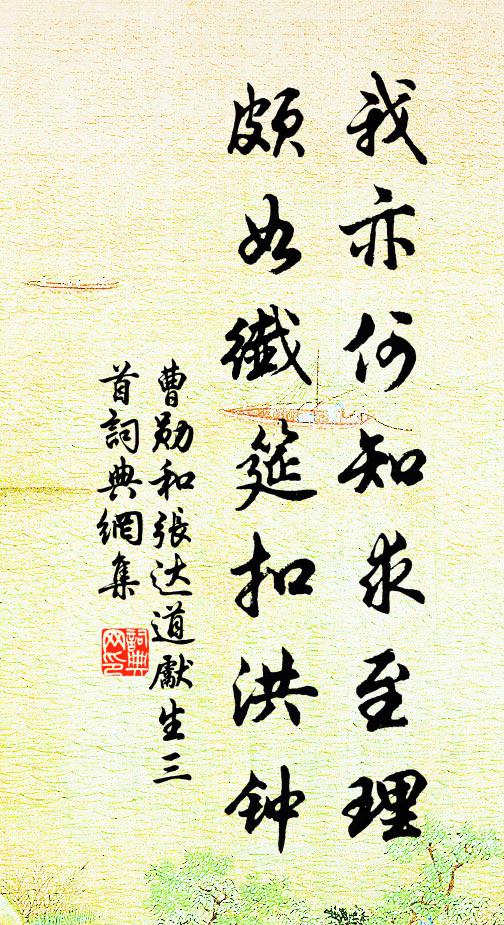 我亦何知求至理
颇如纎筵扣洪钟
曹勋和張达道獻生三
首詞典網集
詞典网印